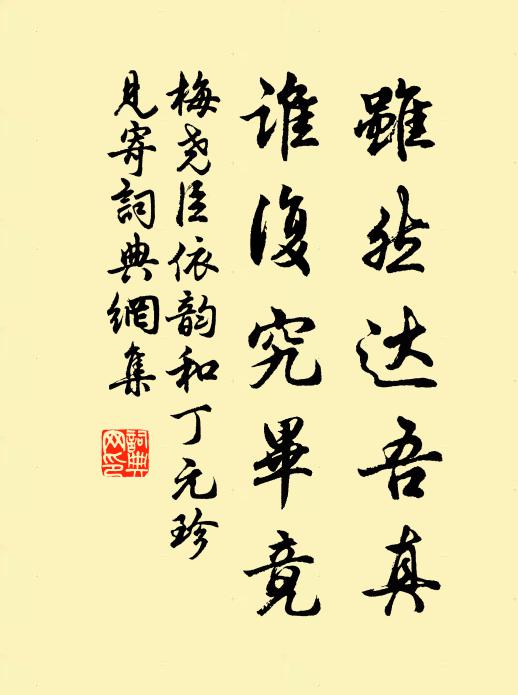 雖然达吾真
谁復究畢竟
梅尧臣依韵和丁元珍
見寄詞典網集
詞典
网印